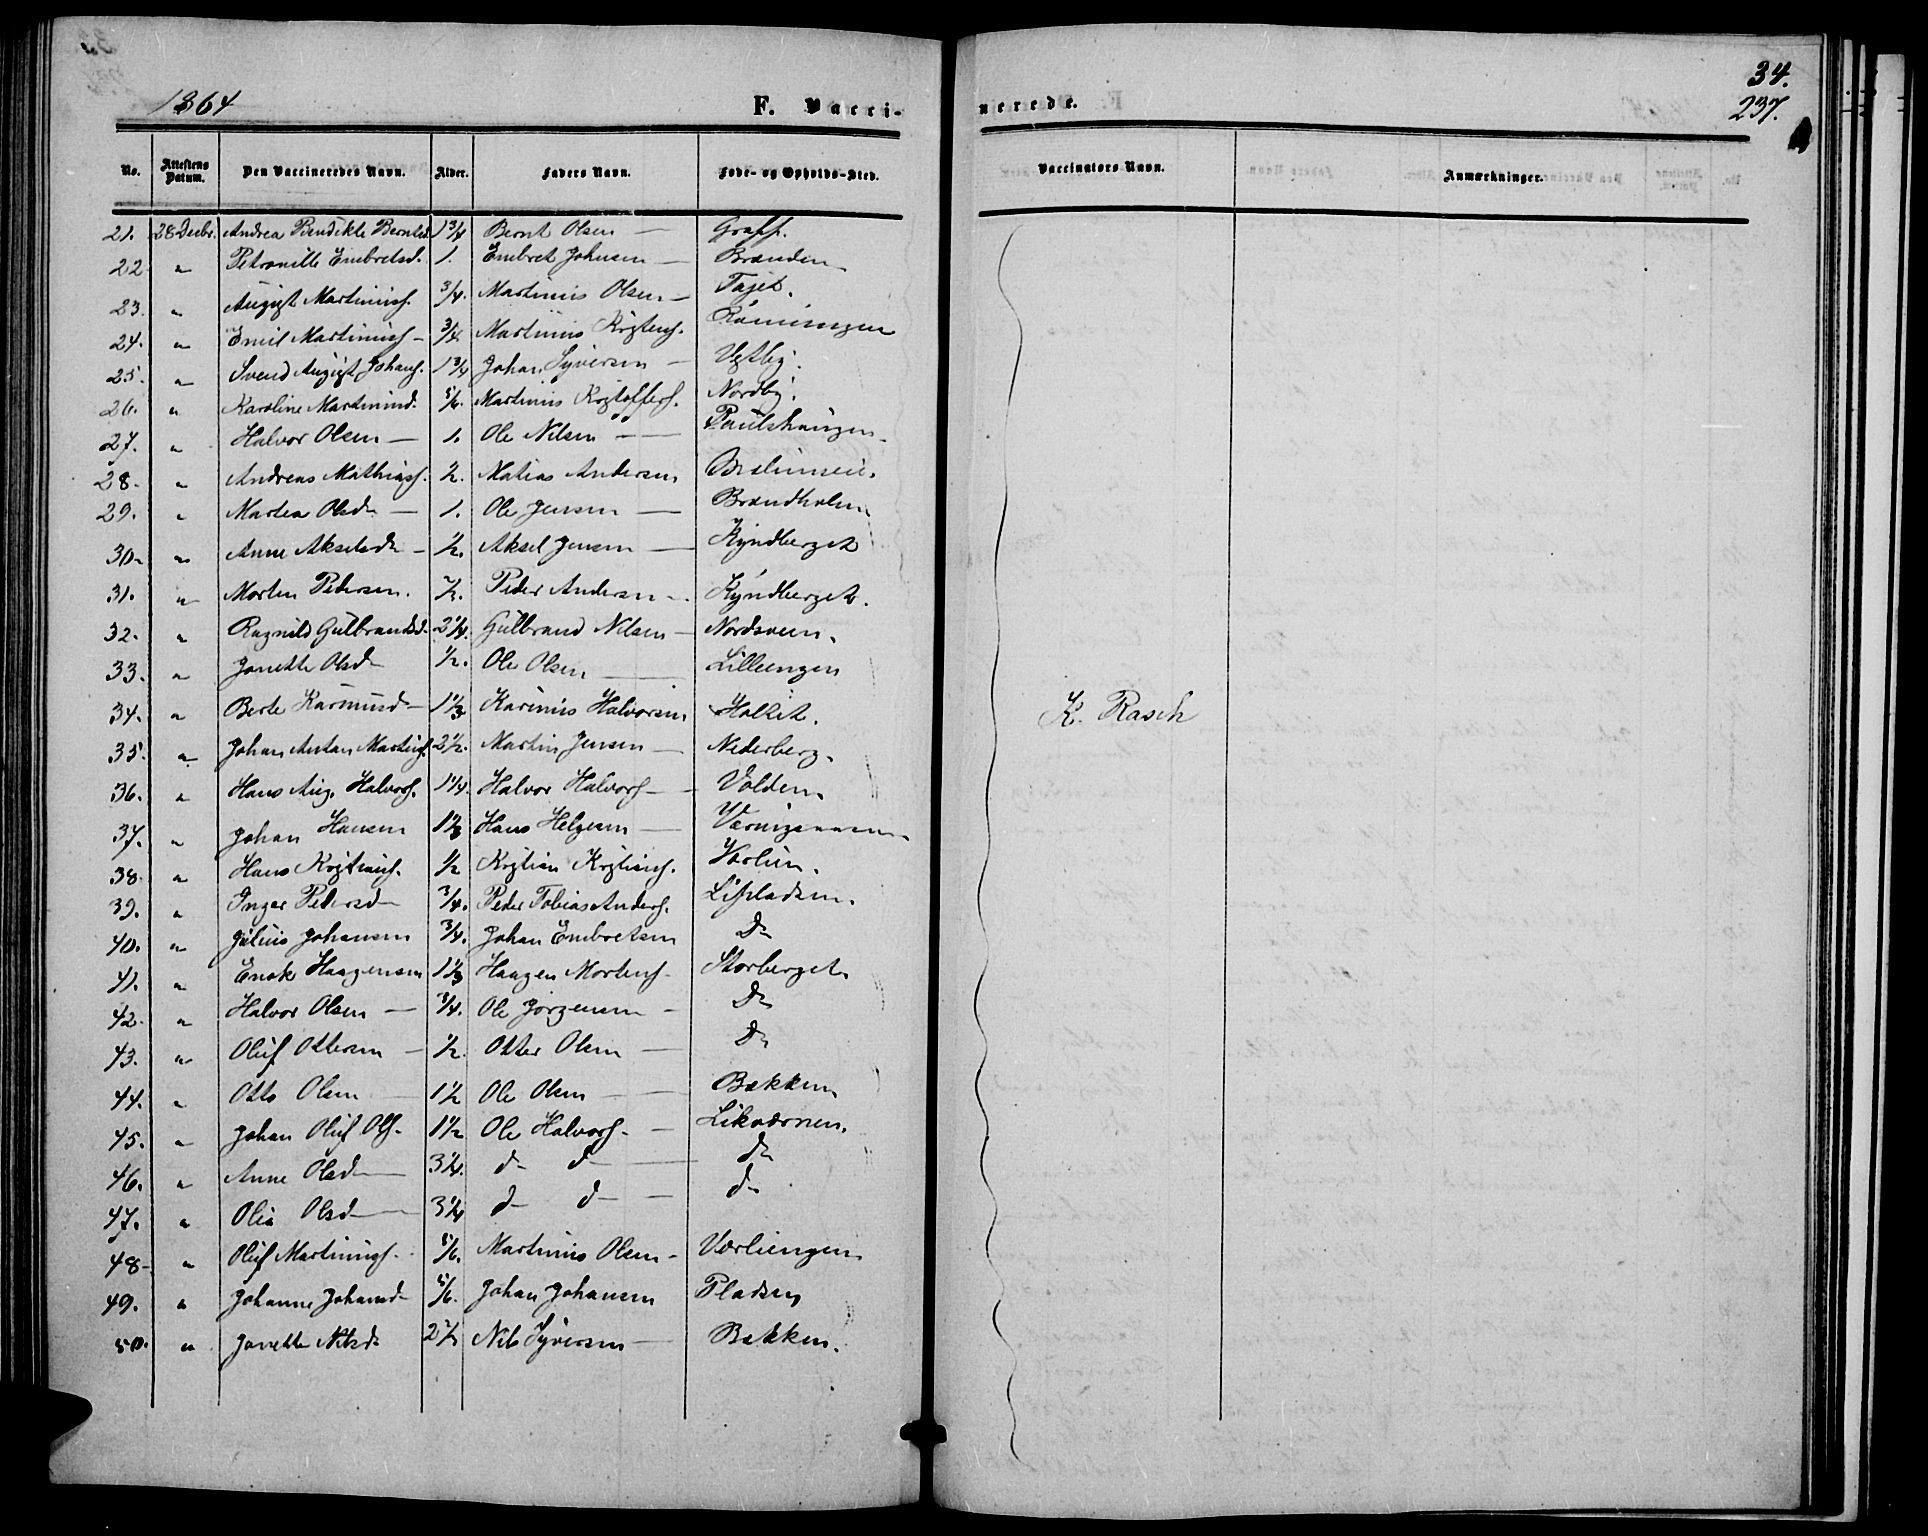 34.
1864 F. Vacci- nerede. 237.
No. Attestens Datum. Den Vaccineredes Navn. Alder. Faders Navn. Føde- og Opholds-Sted. Vaccinators Navn. Anmærkninger.
21. 28 Decbr. Andrea Bendikte Berntsd. 1 3/4 Bernt Olsen — Graff.
22. " Petronille Embretsd. 1. Embret Johnsen — Brænden
23. " August Martinusf. 3/4. Martinus Olsen — Tajet.
24. " Emil Martinusf — 3/4 Martinus Kristensf. Rönningen
25. " Svend August Johansf. 1 3/4 Johan Syversen — Vestby.
26. " Karoline Martinusd. 5/6. Martinus Kristoffersf. Nordby.
27. " Halvor Olsen — 1. Ole Nilsen — Paulshaugen
28. " Andreas Mathiasf. 1/2. Matias Andersen
29. " Martea Olsd — 1. Ole Jensen — Brændholen
30. " Anne Akselsd — 1/2. Aksel Jensen — Kyndberget
31. " Morten Pedersen. 1/2. Peder Andersen — Kyndberget.
32. " Ragnild Gulbrandsd. 2 1/4. Gulbrand Nilsen — Nordsveen.
33. " Janette Olsd 1/2. Ole Olsen — Lilleengen
34. " Berte Karinusd — 1 1/3 Karinus Halvorsen Holtet. K. Rasch
35. " Johan Antan Martinsf. 2 1/2. Martin Jensen — Nederberg.
36. " Hans Aug. Halvorsf. 1 1/4. Halvor Halvorsf — Volden.
37. " Johan Hansen 1 1/3 Hans Helgesen —
38. " Hans Kristiansf. 1/2 Kristian Kristiansf. Vorlien.
39. " Inger Pedersd — 3/4. Peder Tobias Andersf. Lispladsen.
40. " Julius Johansen 3/4. Johan Embretsen D
41. " Enok Haagensen 1 1/3 Haagen Mortensf — Storberget.
42. " Halvor Olsen — 3/4. Ole Jörgensen — D
43. " Oluf Ottersen — 1/2. Otter Olsen — D
44. " Otto Olsen 1 1/2 Ole Olsen — Bækken
45. " Johan Oluf Olsf. 1 1/2 Ole Halvorsf. — Likværnen.
46. " Anne Olsd — 3 1/4. d d — D
47. " Olea Olsd — 3 1/4 d d — d
48. " Oluf Martinusf. 5/6. Martinus Olsen — Vorliengen
49. " Johanne Johansd 5/6. Johan Johansen Pladsen
50. " Janette Nilsd. 2 1/2 Nils Syversen — Bækken.